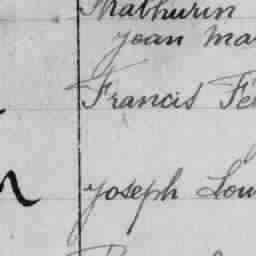 Mathurin
Jean Ma
Francis Fé
Joseph Lou